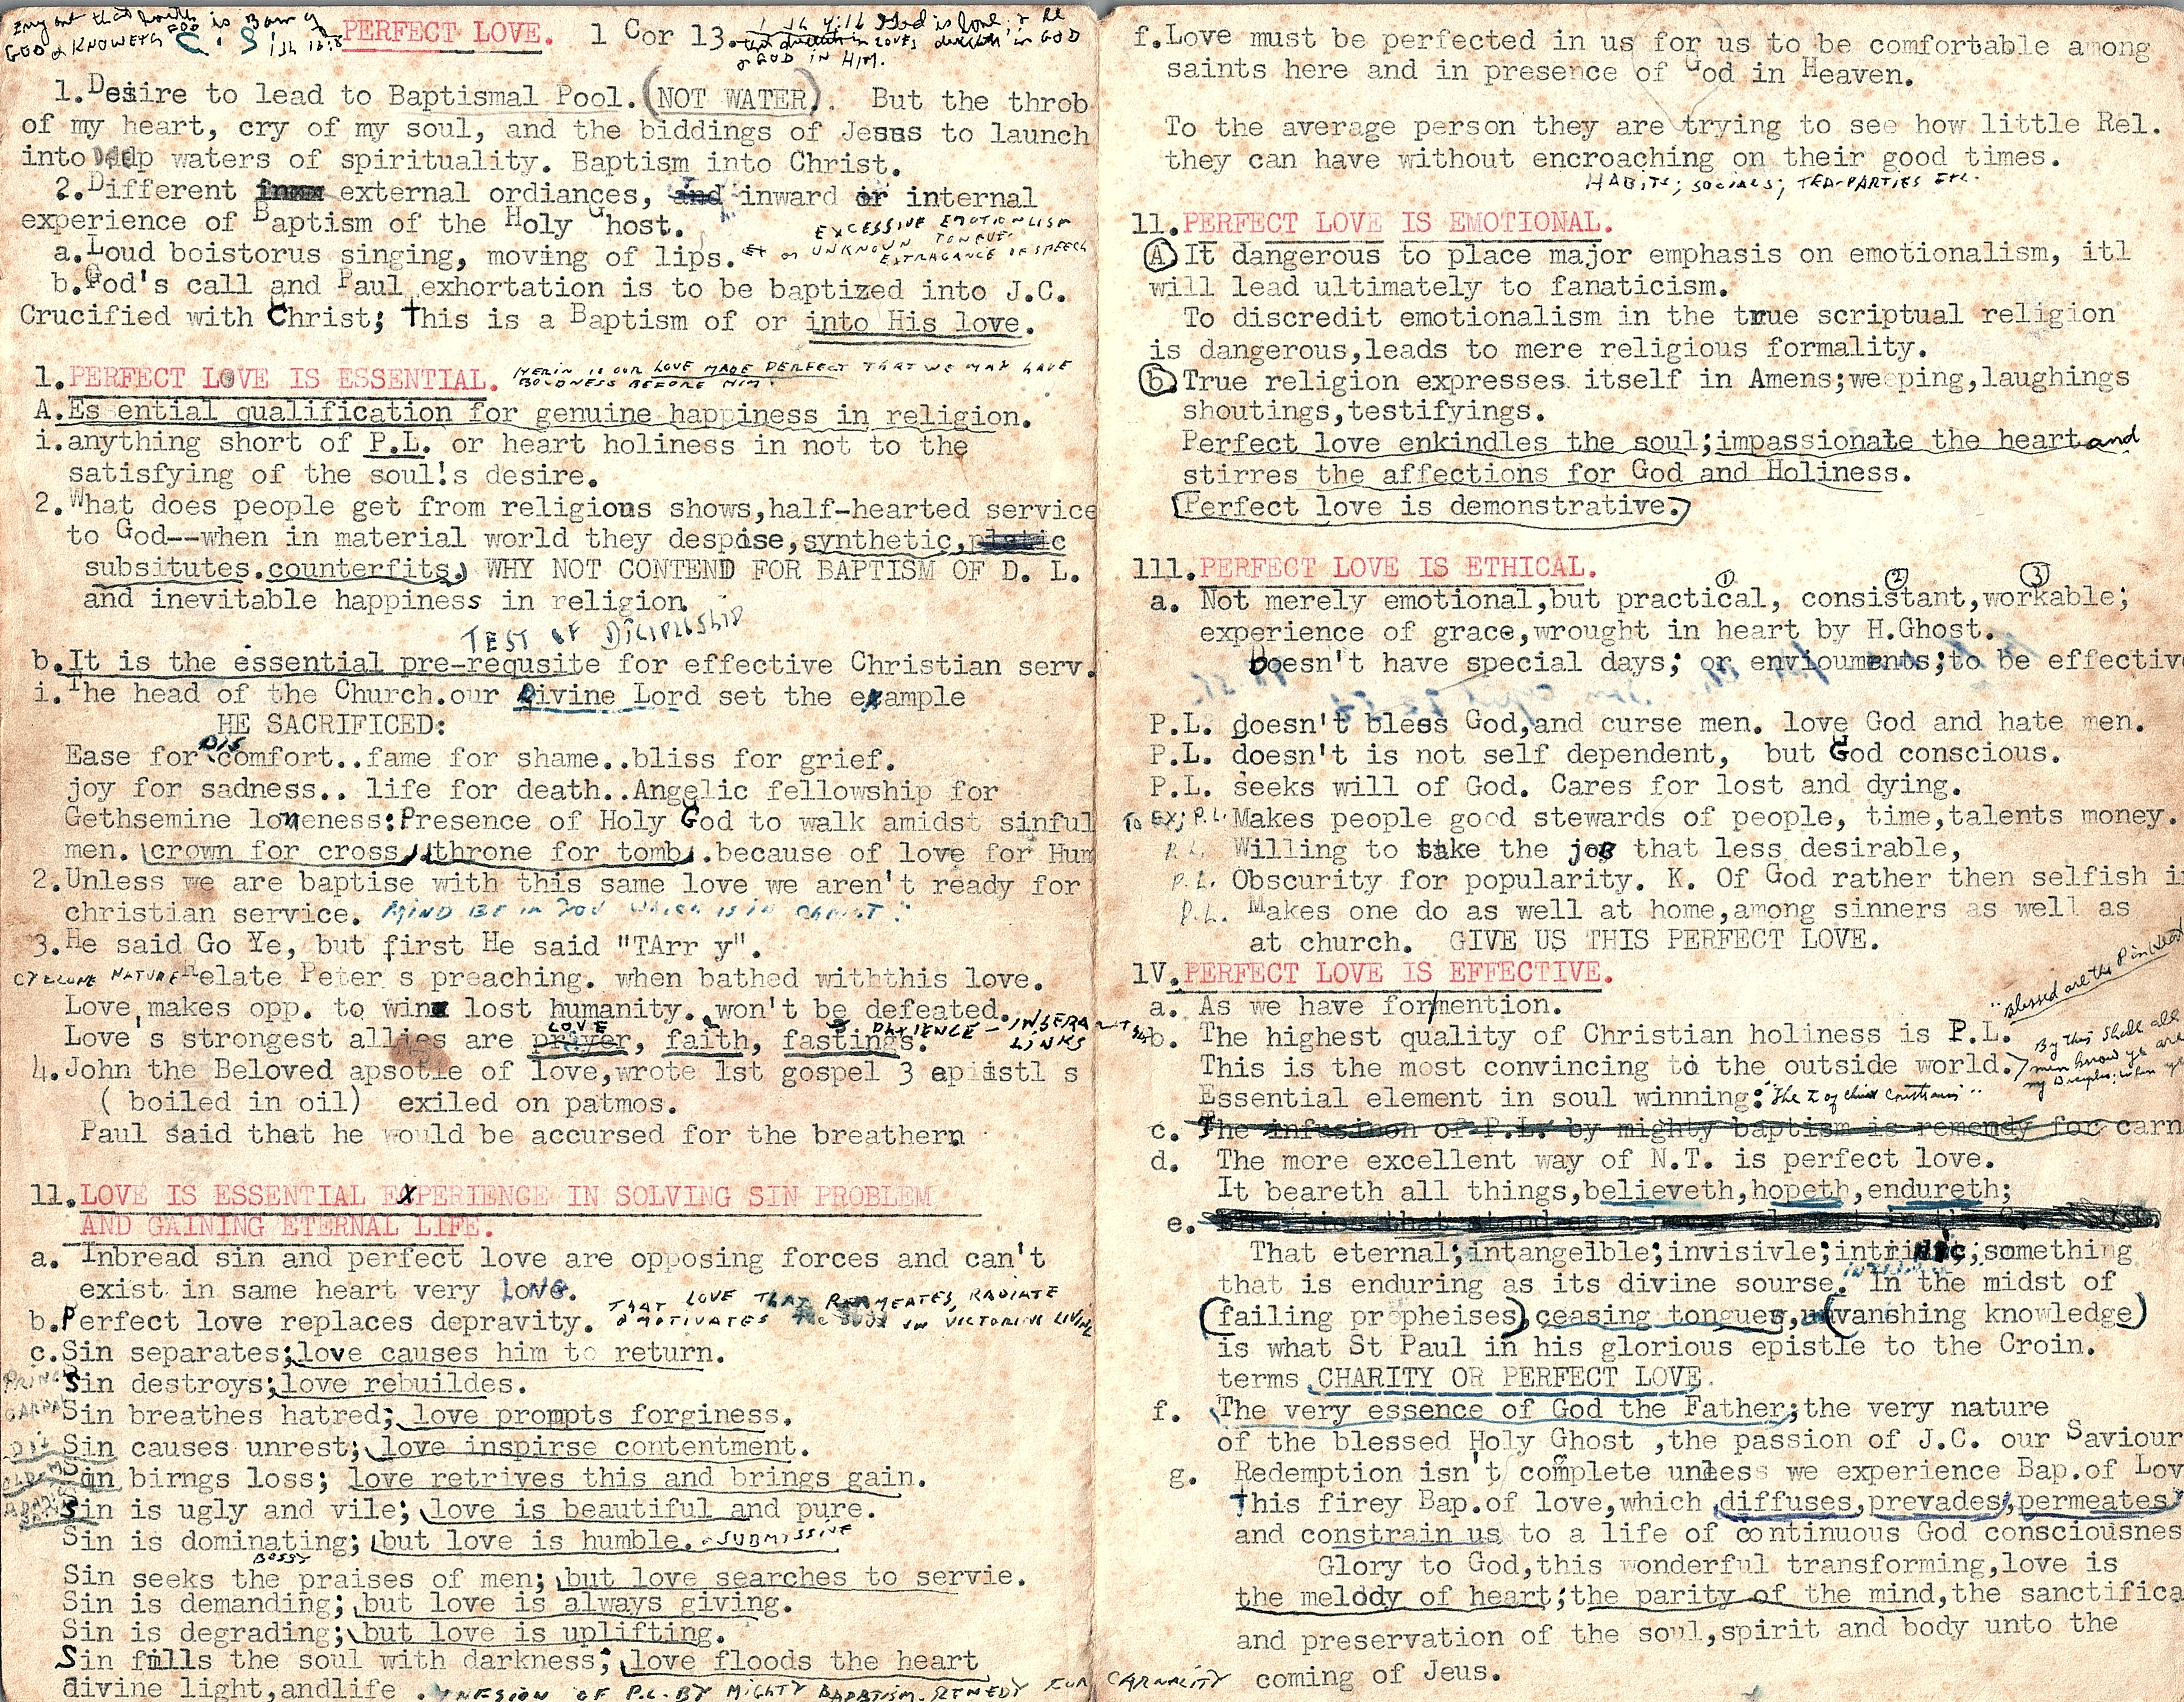 PERFECT LOVE. 1 Cor 13.
GOD & KNOWETH GOD
God is love, & he
in LOVES dwelleth in GOD
& GOD IN HIM.
1.Desire to lead to Baptismal Pool.(NOT WATER). But the throb
of my heart, cry of my soul, and the biddings of Jesus to launch
into waters of spirituality. Baptism into Christ.
2.Different external ordiances, and inward or internal
experience of Baptism of the Holy Ghost.
EXCESSIVE EMOTIONLISM
a.Loud boistorus singing, moving of lips. or UNKNOWN TONGUE.
EXTRAGANCE OF SPEECH
b.God's call and Paul exhortation is to be baptized into J.C.
Crucified with Christ; This is a Baptism of or into His love.
1.PERFECT LOVE IS ESSENTIAL. HERIN IS OUR LOVE MADE PERFECT THAT WE MAY HAVE
BOLDNESS BEFORE HIM.
A.Es ential qualification for genuine happiness in religion.
i.anything short of P.L. or heart holiness in not to the
satisfying of the soul!s desire.
2.What does people get from religious shows,half-hearted service
to God--when in material world they despise,synthetic,
subsitutes.counterfits. WHY NOT CONTEND FOR BAPTISM OF D. L.
and inevitable happiness in religion.
TEST OF DICIPLESHIP
b.It is the essential pre-requsite for effective Christian serv.
i.The head of the Church.our Divine Lord set the example
HE SACRIFICED:
Ease for DIS comfort..fame for shame..bliss for grief.
joy for sadness.. life for death..Angelic fellowship for
Gethsemine loneness:Presence of Holy God to walk amidst sinful
men. crown for cross, throne for tomb .because of love for Hum
2.Unless we are baptise with this same love we aren't ready for
christian service. MIND BE IN YOU WHICH IS IN CHRIST
3.He said Go Ye, but first He said "TArr y".
CYCLONE NATURE Relate Peter s preaching. when bathed withthis love.
Love makes opp. to win lost humanity. won't be defeated.
LOVE PATIENCE - INSEPARABLE
LINKS
Love's strongest allies are prayer, faith, fastings.
4.John the Beloved apsotle of love,wrote 1st gospel 3 apistl s
( boiled in oil) exiled on patmos.
Paul said that he would be accursed for the breathern
11.LOVE IS ESSENTIAL EXPERIENCE IN SOLVING SIN PROBLEM
AND GAINING ETERNAL LIFE.
a. Inbread sin and perfect love are opposing forces and can't
exist in same heart very LONG.
b.Perfect love replaces depravity. THAT LOVE THAT PERMEATES, RADIATE
& MOTIVATES THE SOUL IN VICTORIUS LIVING
c.Sin separates;love causes him to return.
Sin destroys;love rebuildes.
Sin breathes hatred; love prompts forginess.
Sin causes unrest; love inspirse contentment.
Sin birngs loss; love retrives this and brings gain.
Sin is ugly and vile; love is beautiful and pure.
Sin is dominating; but love is humble. SUBMISSIVE
BOSSY
Sin seeks the praises of men; but love searches to servie.
Sin is demanding; but love is always giving.
Sin is degrading; but love is uplifting.
Sin fills the soul with darkness; love floods the heart
divine light,andlife . INFUSION OF P.L. BY MIGHTY BAPBTISM. REMEDY FOR CARNALITY
f.Love must be perfected in us for us to be comfortable among
saints here and in presence of God in Heaven.
To the average person they are trying to see how little Rel.
they can have without encroaching on their good times.
HABITS; SOCIALS; TEA-PARTIES ETC.
11.PERFECT LOVE IS EMOTIONAL.
A.It dangerous to place major emphasis on emotionalism, itl
will lead ultimately to fanaticism.
To discredit emotionalism in the true scriptual religion
is dangerous,leads to mere religious formality.
b.True religion expresses itself in Amens;weeping,laughings
shoutings,testifyings.
Perfect love enkindles the soul;impassionate the heart and
stirres the affections for God and Holiness.
Perfect love is demonstrative.
111.PERFECT LOVE IS ETHICAL.
1 2 3
a. Not merely emotional,but practical, consistant,workable;
experience of grace,wrought in heart by H.Ghost.
Doesn't have special days; or enviouments;to be effective
P.L. doesn't bless God,and curse men. love God and hate men.
P.L. doesn't is not self dependent, but God conscious.
P.L. seeks will of God. Cares for lost and dying.
To EX; P.L. Makes people good stewards of people, time,talents money.
P.L. Willing to take the joB that less desirable,
P.L. Obscurity for popularity. K. Of God rather then selfish in
P.L. Makes one do as well at home,among sinners as well as
at church. GIVE US THIS PERFECT LOVE.
1V.PERFECT LOVE IS EFFECTIVE.
"Blessed are the P in Heart
a. As we have for/mention.
b. The highest quality of Christian holiness is P.L.
This is the most convincing to the outside world.
By this shall all
men know ye are
my Disciples; when ye
Essential element in soul winning: "The L of Christ Constrains"
c. The infusinon of P.L. by mighty baptism is remendy for carn
d. The more excellent way of N.T. is perfect love.
It beareth all things,believeth,hopeth,endureth;
e.
That eternal;intangelble;invisivle;intrinsic;something
that is enduring as its divine sourse. In the midst of
(failing propheises),ceasing tongues,(vanshing knowledge)
is what St Paul in his glorious epistle to the Croin.
terms CHARITY OR PERFECT LOVE.
f. The very essence of God the Father;the very nature
of the blessed Holy Ghost ,the passion of J.C. our Saviour
g. Redemption isn't complete unless we experience Bap.of Lov
This firey Bap.of love,which diffuses,prevades,permeates,
and constrain us to a life of continuous God consciousnes
Glory to God,this wonderful transforming,love is
the melody of heart;the parity of the mind,the sanctifica
and preservation of the soul,spirit and body unto the
coming of Jeus.